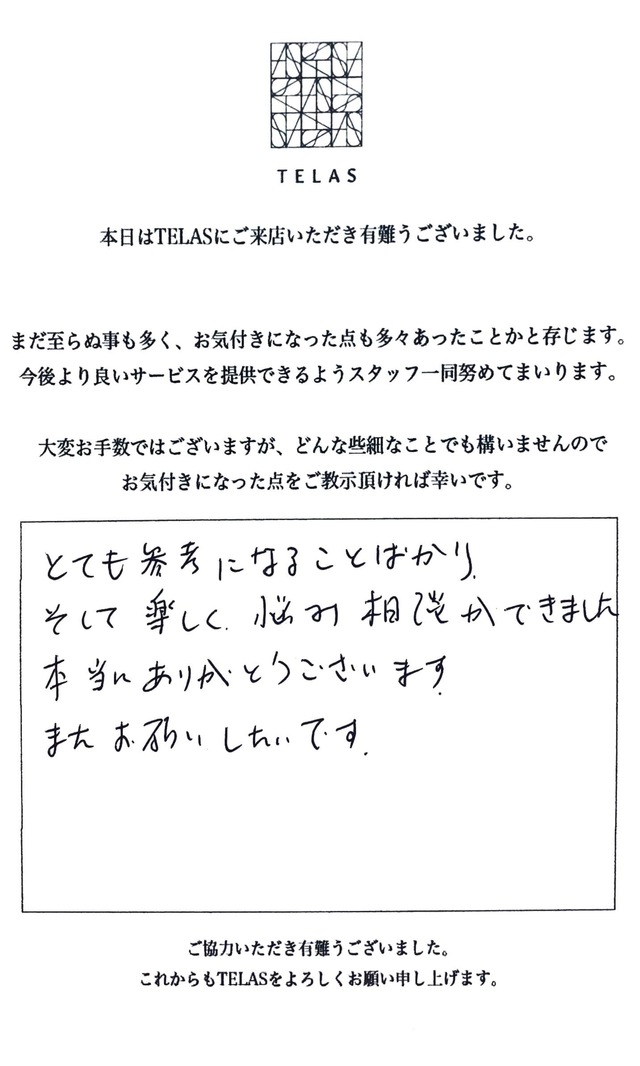 TELAS
本日はTELASにご来店いただき有難うございました。
まだ至らぬ事も多く、お気付きになった点も多々あったことかと存じます。
今後より良いサービスを提供できるようスタッフ一同努めてまいります。
大変お手数ではございますが、どんな些細なことでも構いませんので
お気付きになった点をご教示頂ければ幸いです。
とても参考になることばかり、
そして楽しく、悩み相談ができました
本当にありがとうございます。
またお願いしたいです。
ご協力いただき有難うございました。
これからもTELASをよろしくお願い申し上げます。